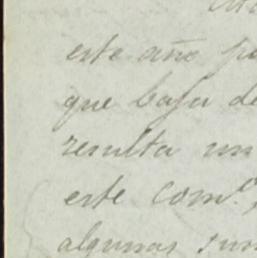 este año
que baja de
resulta un
este com.º,
algunas